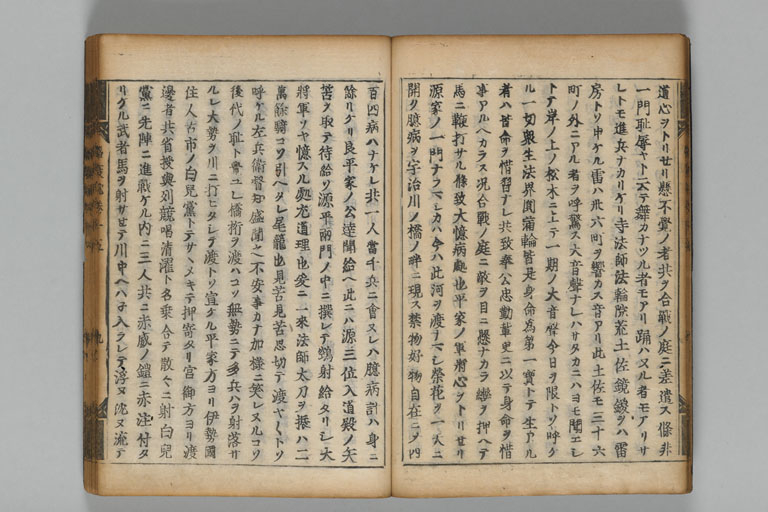 道心ヲトリせリ懸不覚ノ者共ヲ合戦ノ庭ニ差遣ス條非
一門耻辱ヤト云テ舞カナツル者モアリ踊ハヌル者モアリサ
レトモ進兵ナカリケリ寺法師法輪院荒土佐鏡鑁ヲハ雷
房トソ申ケル雷ハ卅六町ヲ響カス音アリ此土佐モ三十六
町ノ外ニアル者ヲ呼驚ス大音聲ナレハサタカニハヨモ聞エシ
トテ岸ノ上ノ松木ニ上テ一期ノ大音聲今日ヲ限トソ呼ケ
ル一切衆生法界圓輪皆是身命為第一寶トテ生アル
者ハ皆命ヲ惜習ナレ共致奉公忠勤輩更ニ以テ身命ヲ惜
事アルヘカラス况合戦ノ庭ニ敵ヲ目ニ懸ナカラ轡ヲ押ヘテ
馬ニ鞭打サル條致大憶病處也平家ノ軍将心ヲトリせリ
源家ノ一門ナラマシカハ今ハ此河ヲ渡ナマシ榮花ヲ一天ニ
開ク臆病ヲ宇治川ノ橋ノ畔ニ現ス禁物好物自在ニメ四
百四病ハナケレ共一人當千兵ニ會ヌレハ臆病計ハ身ニ
餘リケリ良平家ノ公達聞給ヘ此ニハ源三位入道殿ノ矢
筈ヲ取テ待給ソ源平兩門ノ中ニ撰レテ鵼射給タリシ大
將軍ソヤ憶スル處尤道理也爰ニ一来法師太刀ヲ振ハ二
萬餘騎コソ引ヘタレ尾籠也見苦見苦思切テ渡ヤ〱トソ
呼ケル左兵衛督知盛聞之不安事カナ加様ニ笑レヌルコソ
後代ノ耻ト覚ユレ橋桁ヲ渡ハコソ無勢ニテ多兵ハヲ射落サ
ルレ大勢ヲ川ニ打ヒタシテ渡トソ宣ケル平家方ヨリ伊勢國
住人古市ノ白兒黨トテサヽメキテ押寄タリ宮御方ヨリ渡
邊者共省授與刈競唱清濯ト名乗合テ散々ニ射白兒
黨ニ先陣ニ進戦ケル内ニ三人共ニ赤威ノ鎧ニ赤注付タ
リケル武者馬ヲ射サせテ川中ヘハ子入ラレテ浮ヌ沈ヌ流テ